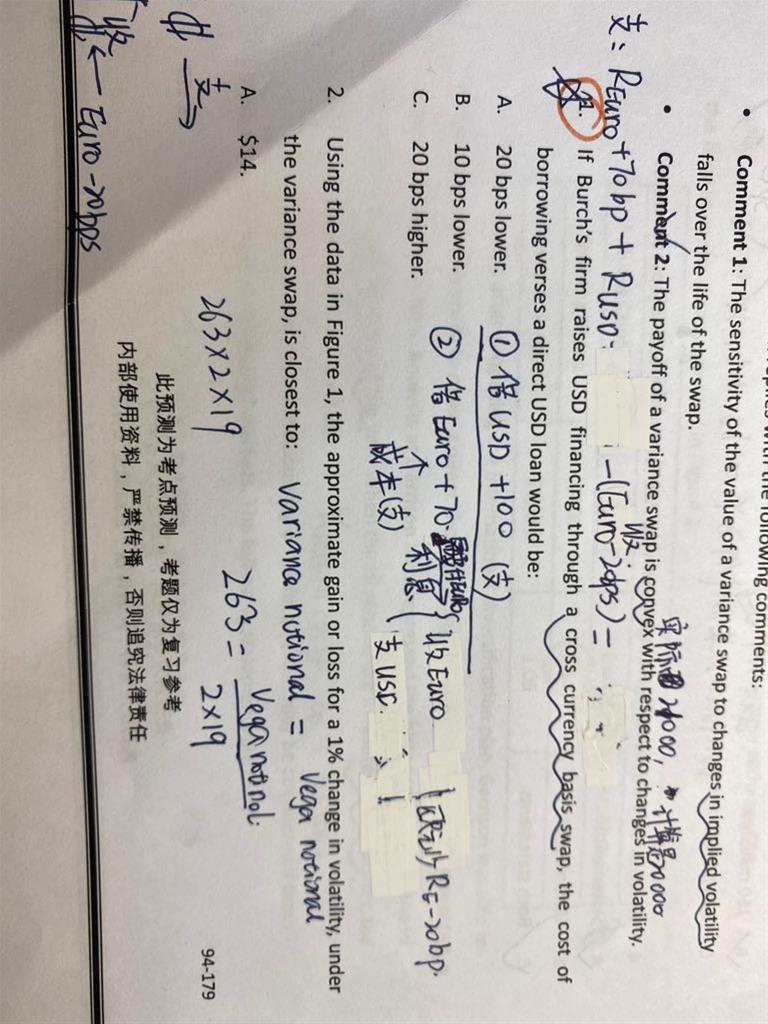 the following comments:
• Comment 1: The sensitivity of the value of a variance swap to changes in implied volatility
falls over the life of the swap.
• Comment 2: The payoff of a variance swap is convex with respect to changes in volatility.
支: REuro +70bp + RUSD - (Euro-20bps) =
收
1. If Burch's firm raises USD financing through a cross currency basis swap, the cost of
borrowing verses a direct USD loan would be:
A. 20 bps lower.
B. 10 bps lower.
C. 20 bps higher.
① 借USD +100 (支)
② 借Euro +70
利息 { 收Euro
支USD.
RE-20bp.
成本(支)
2. Using the data in Figure 1, the approximate gain or loss for a 1% change in volatility, under
the variance swap, is closest to:
Variance notional = Vega notional
A. $14.
263×2×19
263 = Vega notional
2×19
支
收 ← Euro-20bps
94-179
此预测为考点预测，考题仅为复习参考
内部使用资料，严禁传播，否则追究法律责任